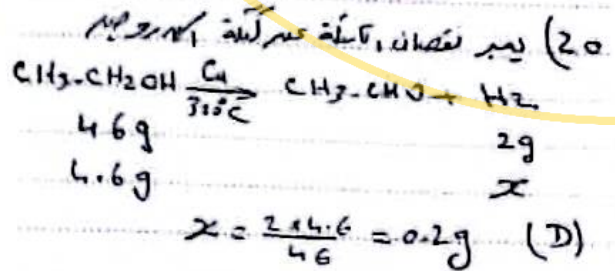 20) يعبر نقصان الكتلة عن كتلة الهيدروجين
CH3-CH2OH Cu 300°C CH3-CHO + H2
46g 2g
4.6g x
x = 2x4.6 / 46 = 0.2g (D)